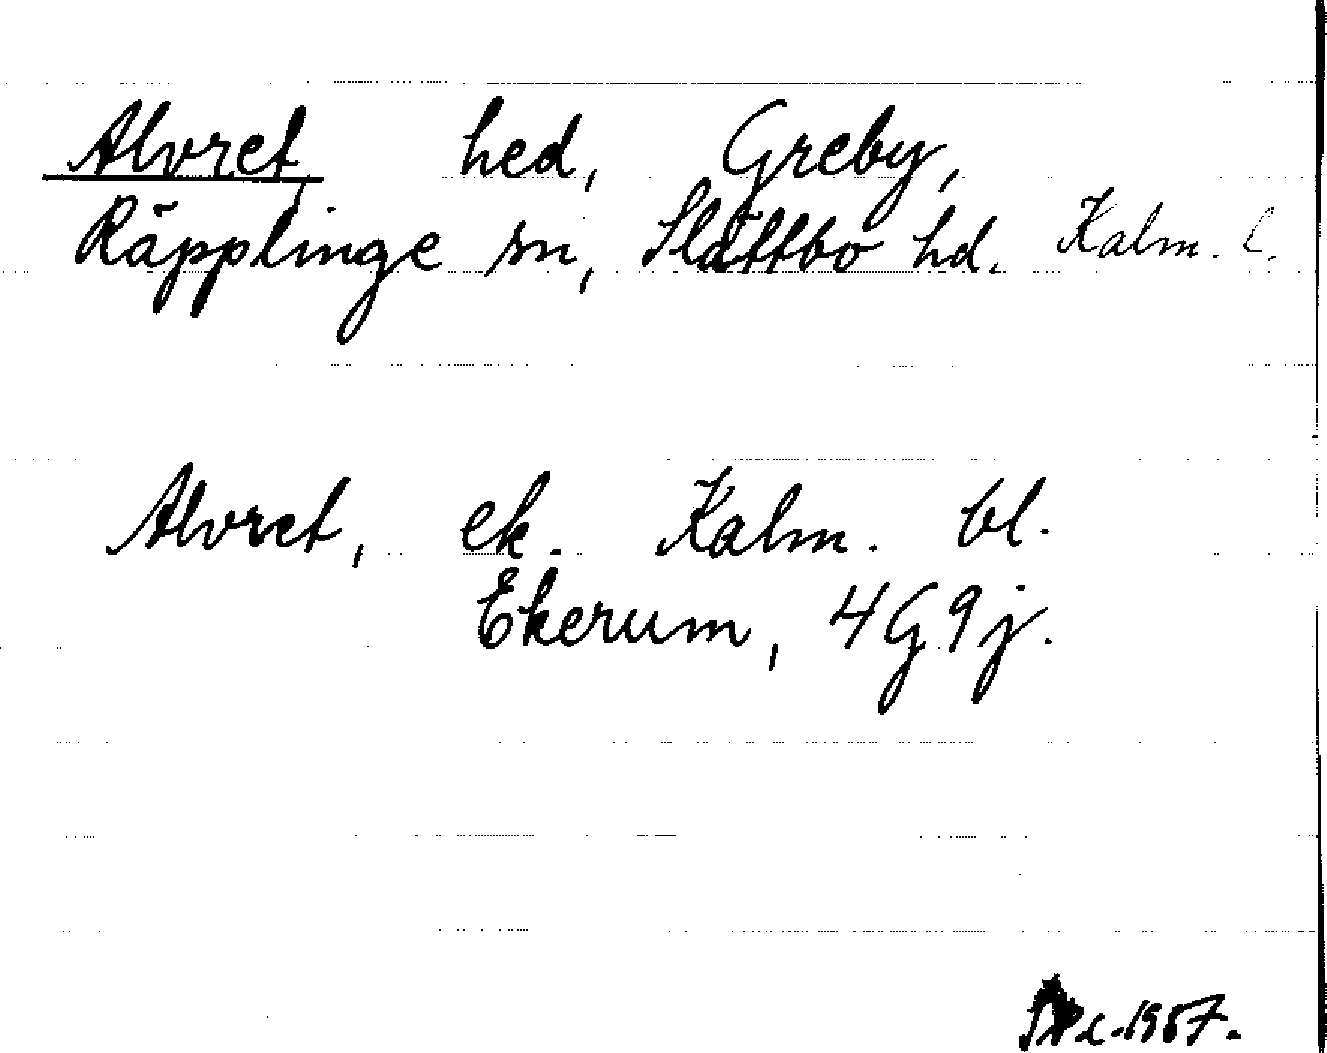 Alvret, hed, Greby,
Räpplinge sn, Slättbo hd. Kalm. l.
Alvret, ek. Kalm. bl.
Ekerum, 4G9j.
1957.